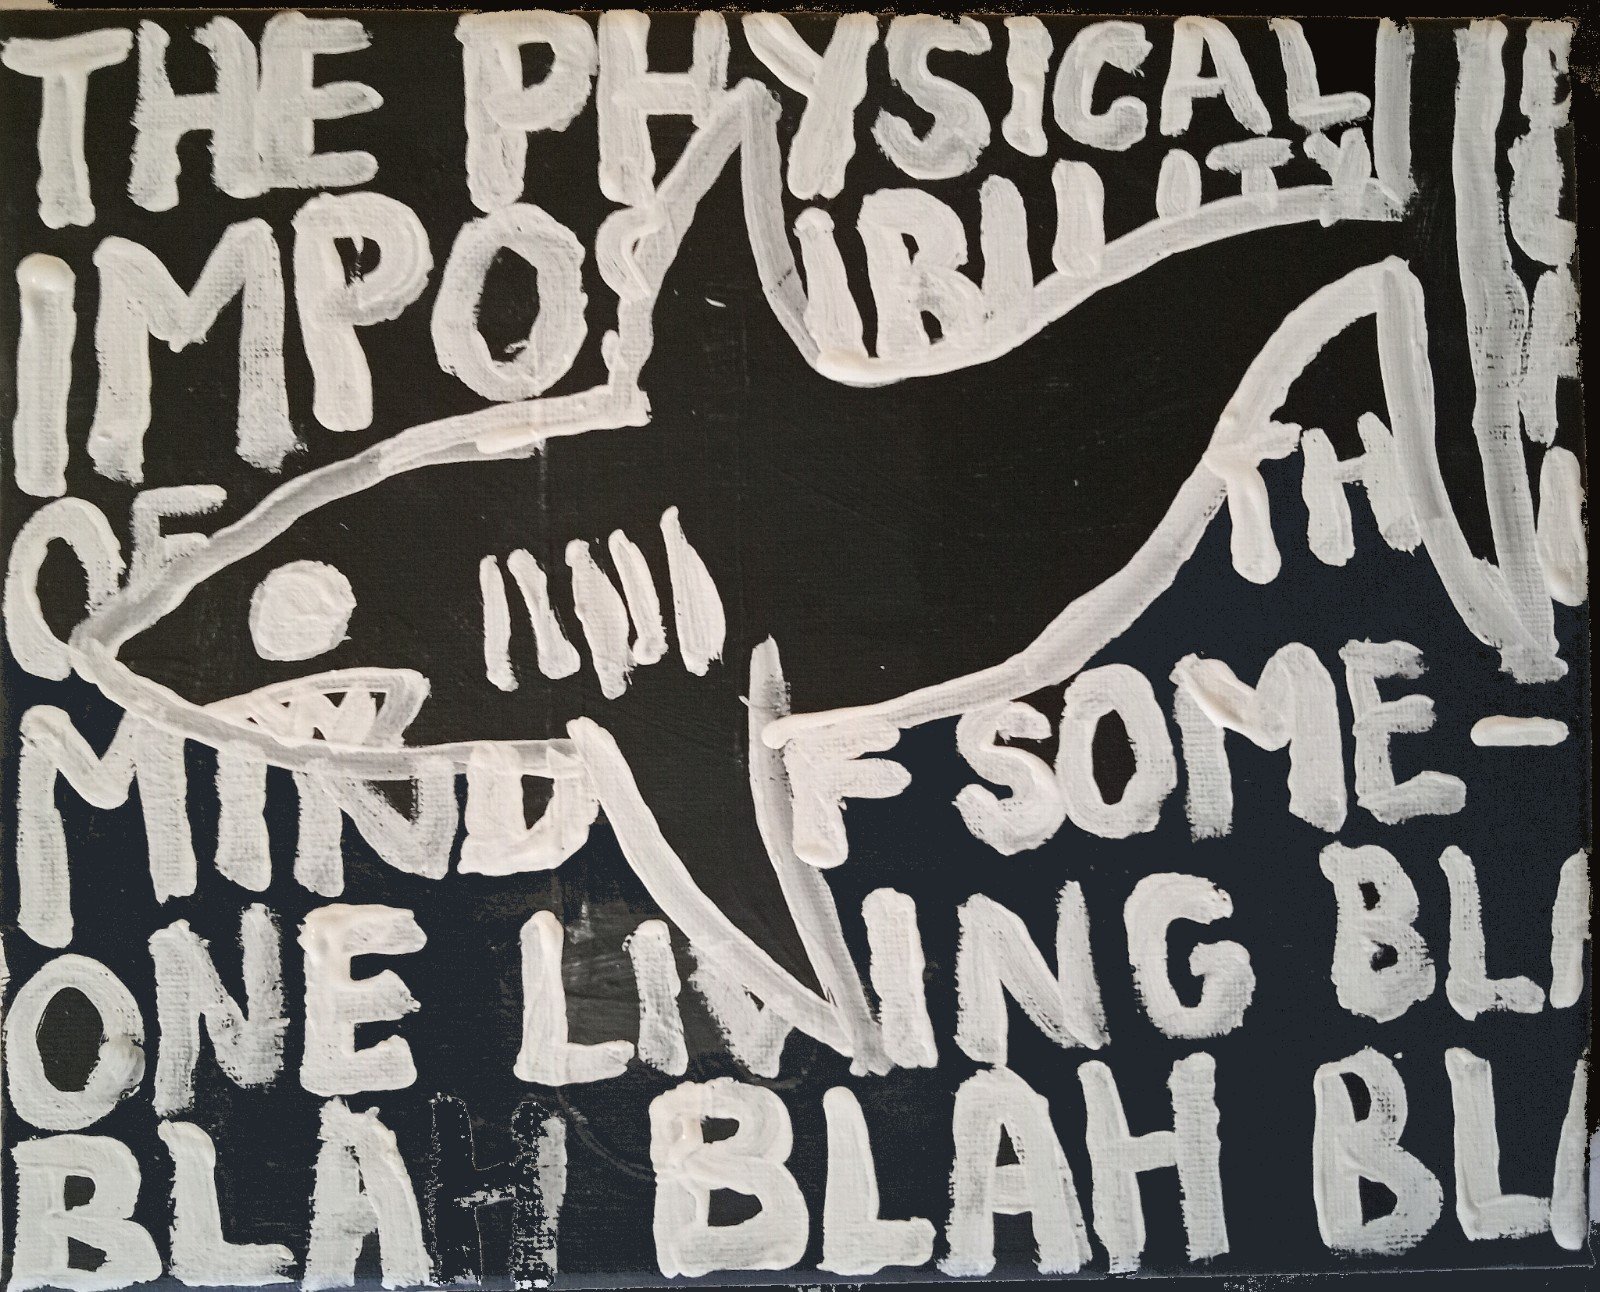 THE PHYSICAL
IMPOS IBILITY
OF TH
MIND F SOME-
ONE LIVING BLA
BLAH BLAH BLA